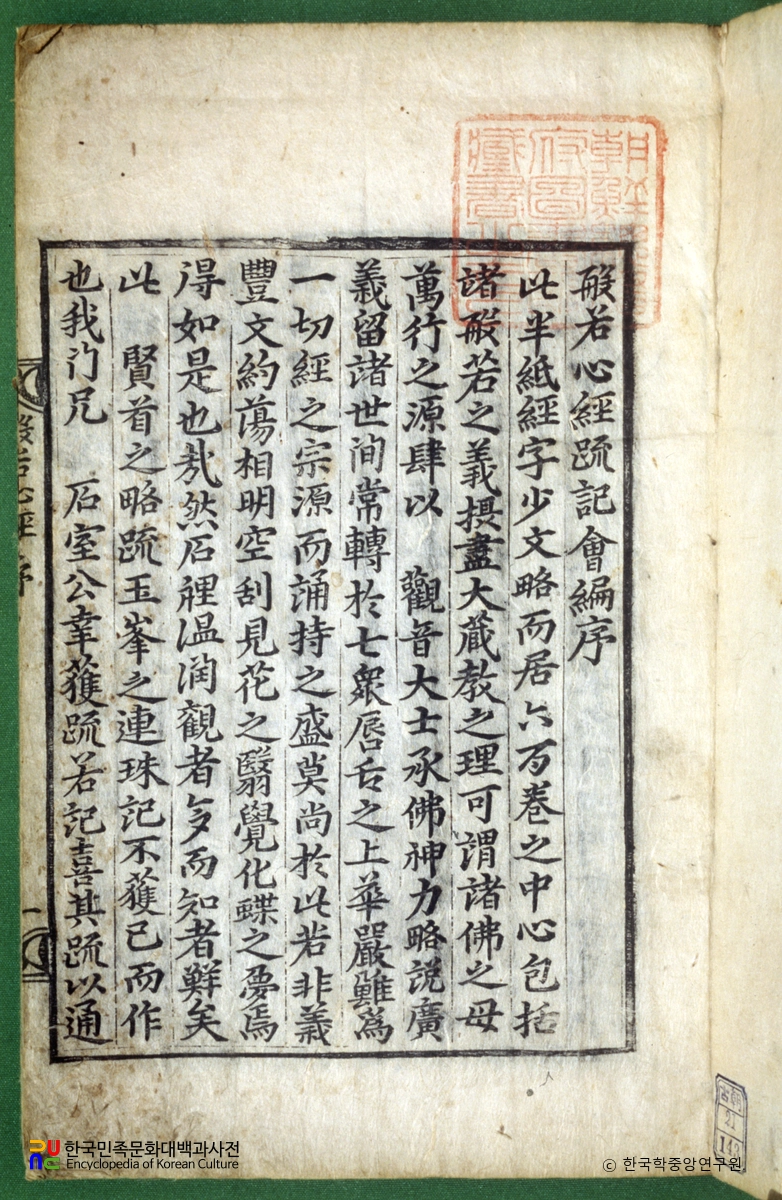 般若心經䟽記會編序
此半紙經字少文略而居六百卷之中心包括
諸般若之義摂盡大藏教之理可謂諸佛之母
萬行之源肆以 觀音大士承佛神力略説廣
義留諸世间常轉於七衆唇舌之上華嚴雖爲
一切經之宗源而誦持之盛莫尚於此若非義
豐文約蕩相明空刮見花之翳覺化蝶之夢焉
得如是也㢤然石裡温润觀者多而知者鮮矣
此 賢首之略䟽玉峯之連珠記不獲已而作
也我门兄 石室公幸獲䟽若記喜其䟽以通
般若心經 序
一
朝鮮
府圖
藏書
古朝
21
149
한국민족문화대백과사전
Encyclopedia of Korean Culture
© 한국학중앙연구원